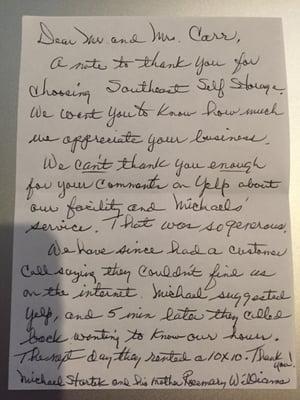 Dear Mr. and Mrs. Carr,
A note to thank you for
choosing Southeast Self Storage.
We want you to know how much
we appreciate your business.
We can't thank you enough
for your comments on Yelp about
our facility and Michaels'
service. That was so generous.
We have since had a customer
call saying they couldn't find us
on the internet. Michael suggested
Yelp, and 5 min later they called
back wanting to know our hours.
The next day they rented a 10x10. Thank you!
Michael Startek and his mother Rosemary Williams